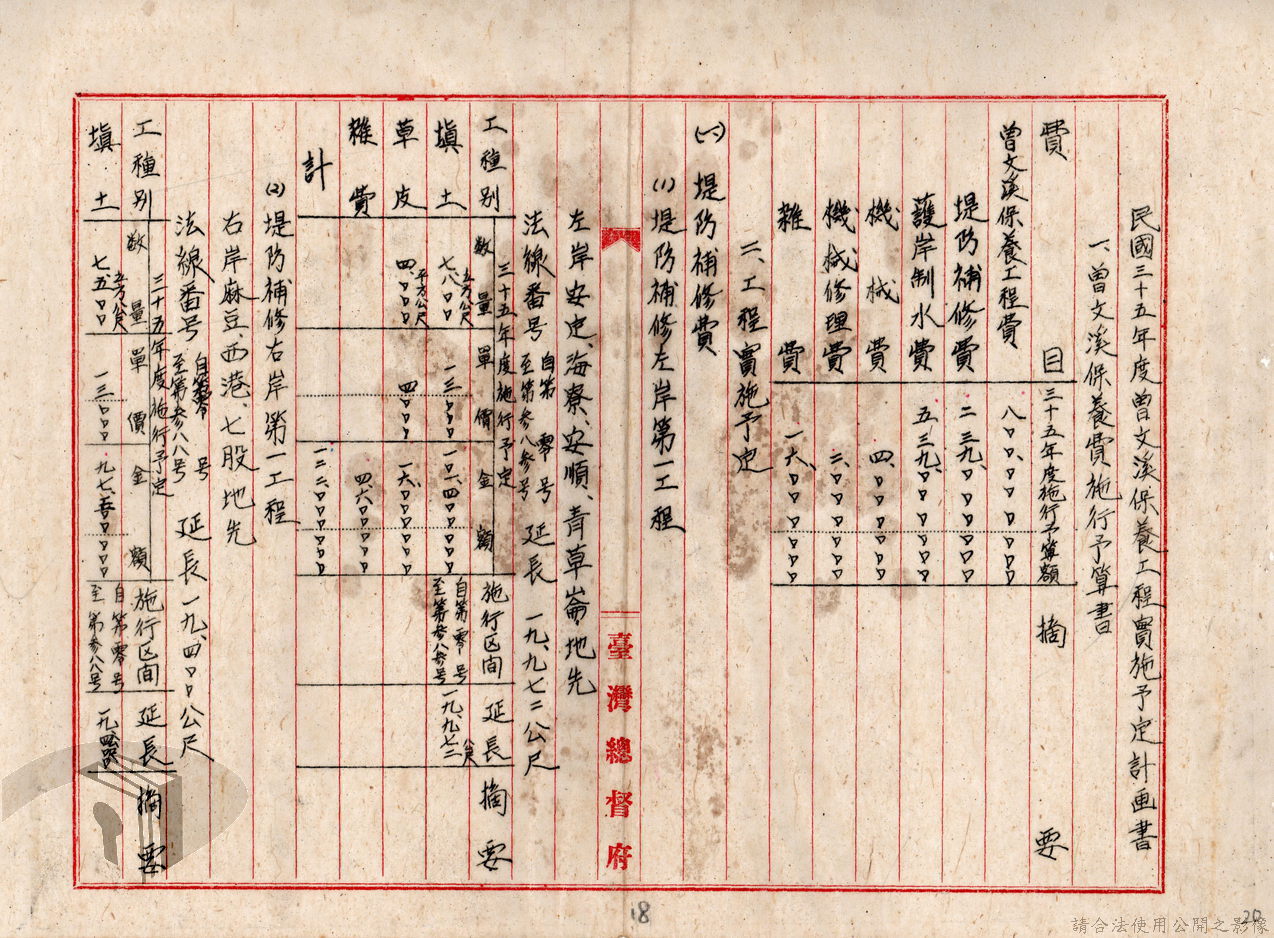 民國三十五年度曾文溪保養工程實施予定計画書
一、曾文溪保養費施行予算書
費 目 三十五年度施行予算額 摘 要
曾文溪保養工程費 八〇〇、〇〇〇〇〇
堤防補修費 二三九、〇〇〇〇〇
護岸制水費 五三九、〇〇〇〇〇
機械費 四、〇〇〇〇〇
機械修理費 二、〇〇〇〇〇
雜費 一六、〇〇〇〇〇
二、工程實施予定
(一)堤防補修費
(1)堤防補修左岸第一工程
左岸安定、海寮、安順、青草崙、地先
法線番号 自第零号 至第参八参号 延長 一九、九七二公尺
工種別 三十五年度施行予定 數量 單價 金額 施行区间 延長 摘要
填土 七、八〇〇立方公尺 一三〇〇 一〇一、四〇〇〇〇 自第零号 至第参八参号 一九、九七二公尺
草皮 四、〇〇〇平方公尺 四〇〇 一六、〇〇〇〇〇
雜費 四、六〇〇〇〇
計 一二二、〇〇〇〇〇
(2)堤防補修右岸第一工程
右岸麻豆、西港、七股地先
法線番号 自第零号 至第参八八号 延長 一九、四〇〇公尺
工種別 三十五年度施行予定 數量 單價 金額 施行区间 延長 摘要
填土 七五〇〇立方公尺 一三〇〇 九七、五〇〇〇〇 自第零号 至第参八八号
臺灣總督府
18
20
請合法使用公開之影像